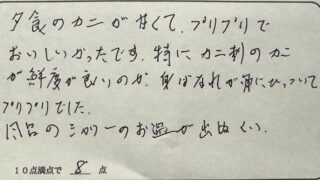 夕食のカニが甘くて、プリプリで
おいしかったです。特にカニ刺のカニ
が鮮度が良いのか、身ばなれが にひっついて
プリプリでした。
風呂のシャワーのお湯が出ぬくい。
10点満点で 8 点